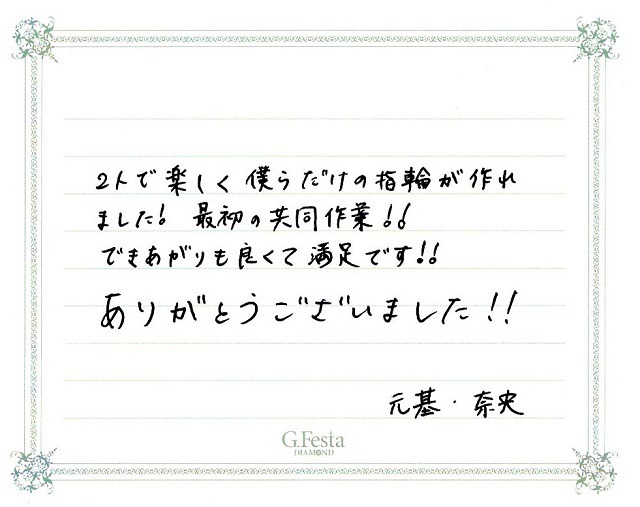 2人で楽しく僕らだけの指輪が作れ
ました! 最初の共同作業!!
できあがりも良くて満足です!!
ありがとうございました!!
元基・奈央
G.Festa
DIAMOND